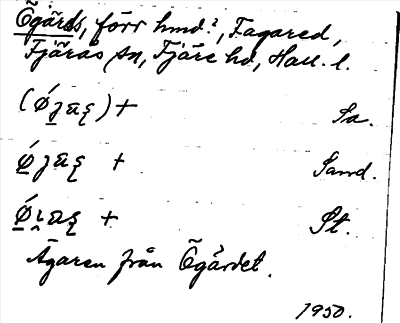 Ögärds, förr hmd?, Fagared,
Fjärås sn, Fjäre hd, Hall. l.
(ǿȷas̨)+ Sa.
ǿȷas̨ + Sand.
+ St.
Ägaren från Ögärdet.
1950.